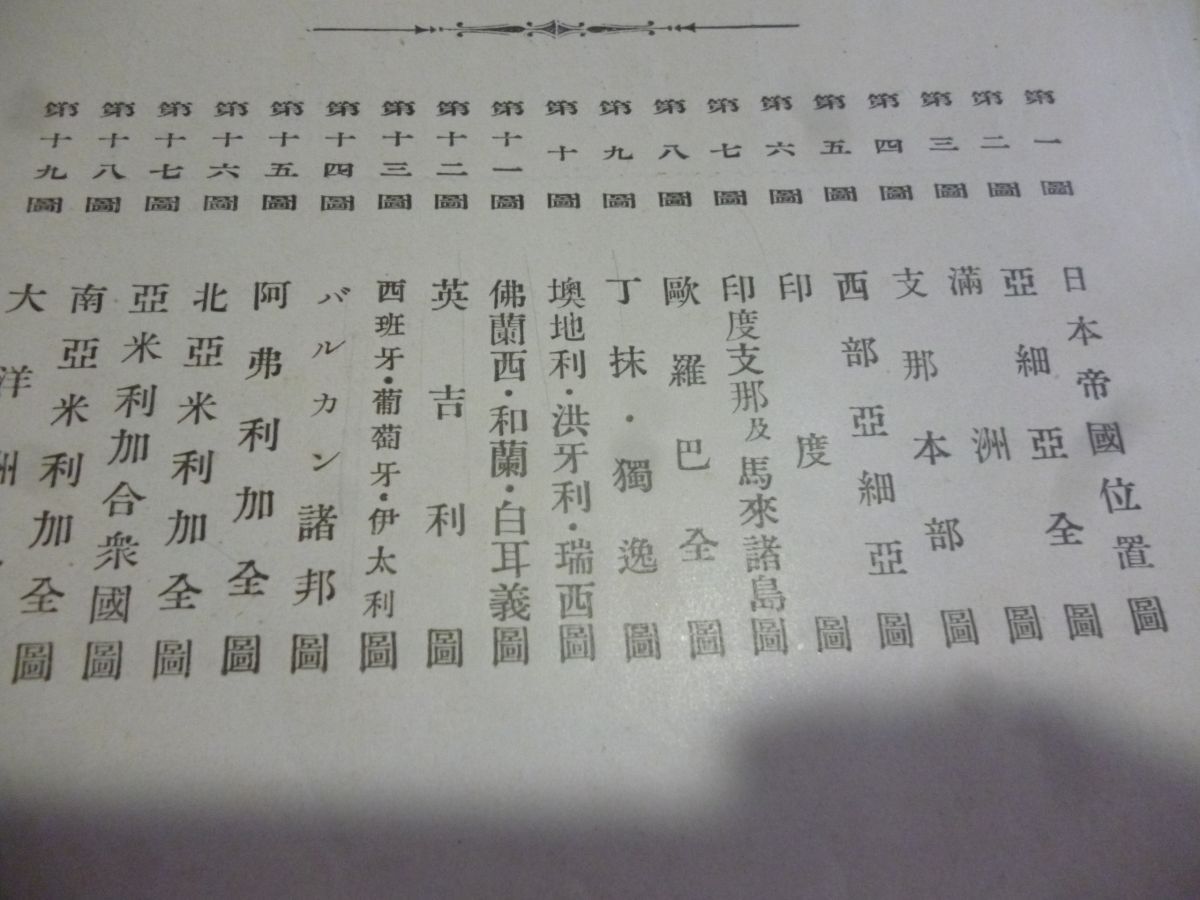 第一圖 日本帝國位置圖
第二圖 亞細亞全圖
第三圖 滿洲圖
第四圖 支那本部圖
第五圖 西部亞細亞圖
第六圖 印度圖
第七圖 印度支那及馬來諸島圖
第八圖 歐羅巴全圖
第九圖 丁抹・獨逸圖
第十圖 墺地利・洪牙利・瑞西圖
第十一圖 佛蘭西・和蘭・白耳義圖
第十二圖 英吉利圖
第十三圖 西班牙・葡萄牙・伊太利圖
第十四圖 バルカン諸邦圖
第十五圖 阿弗利加全圖
第十六圖 北亞米利加全圖
第十七圖 亞米利加合衆國圖
第十八圖 南亞米利加全圖
第十九圖 大洋洲